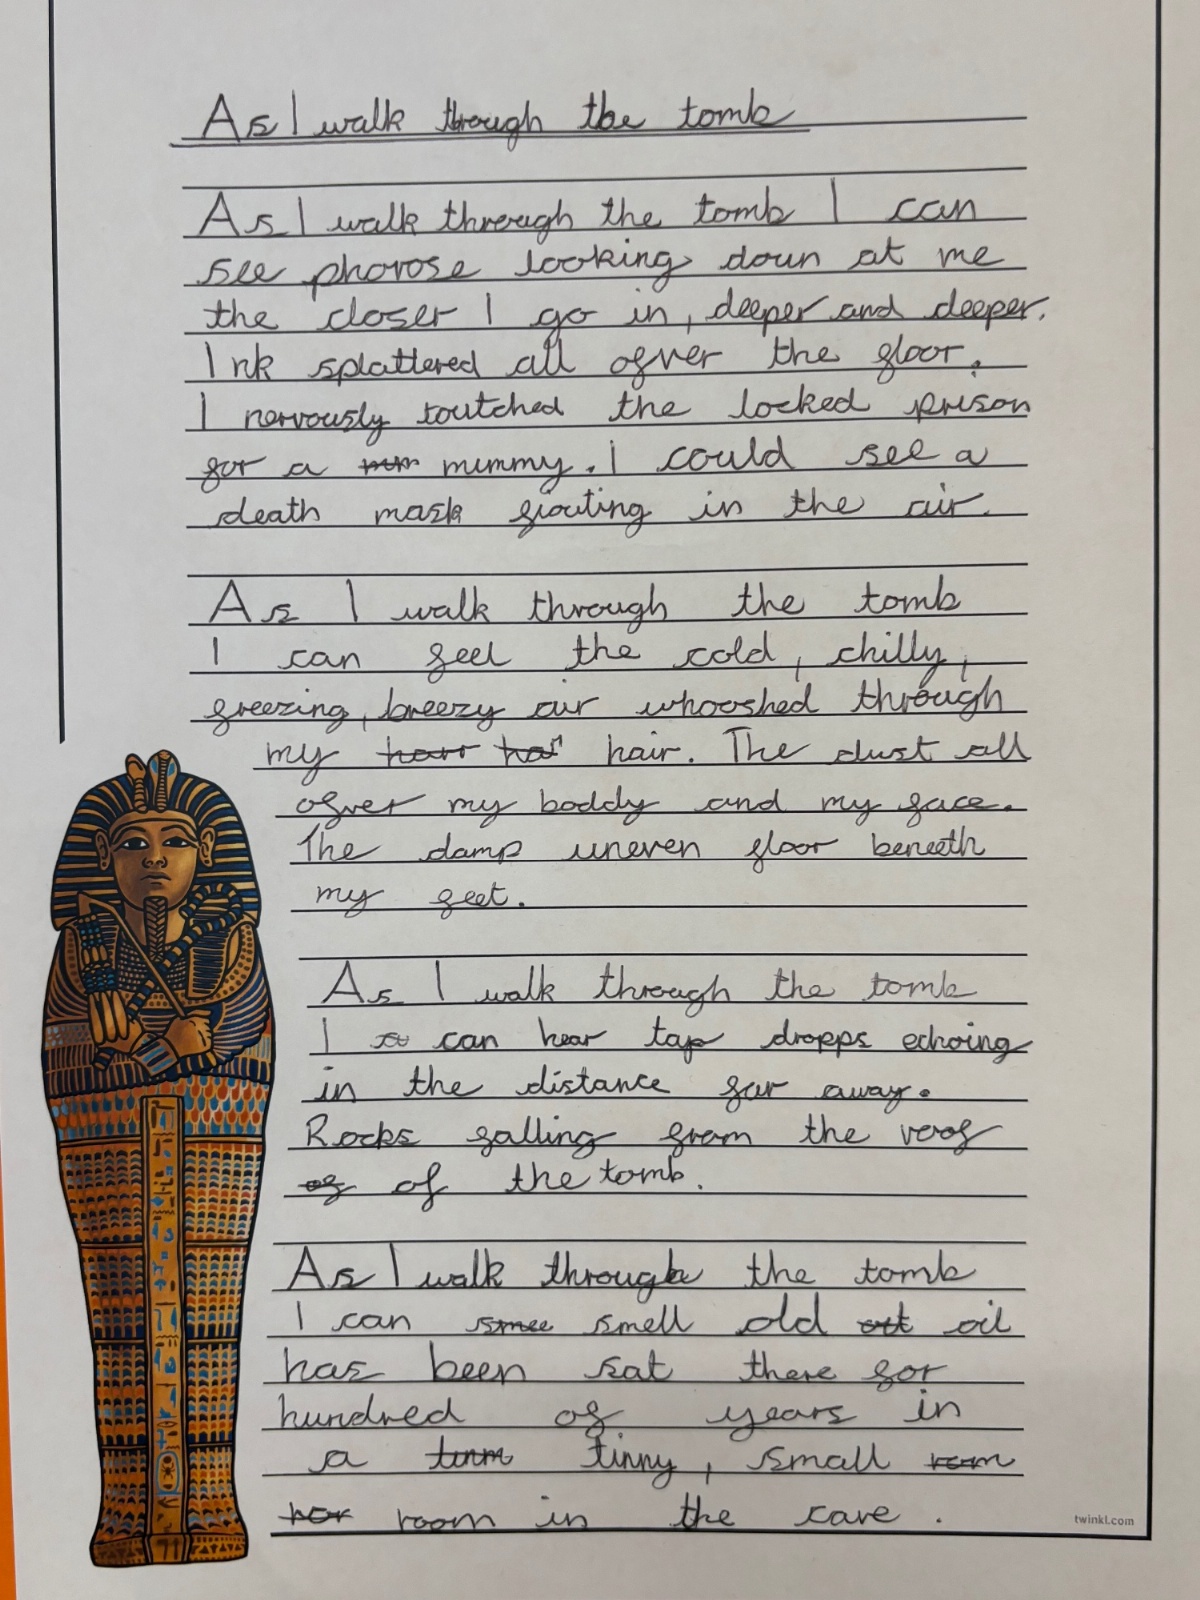 As I walk through the tomb
As I walk through the tomb I can
see phorose looking doun at me
the closer I go in, deeper and deeper.
Ink splattered all ofver the floor.
I nervously toutched the locked prison
for a mummy. I could see a
death mask floating in the air.
As I walk through the tomb
I can feel the cold, chilly,
freezing, breezy air whooshed through
my hair. The dust all
ofver my boddy and my face.
The damp uneven floor beneeth
my feet.
As I walk through the tomb
I can hear tap dropps echoing
in the distance far away.
Rocks falling from the roof
of the tomb.
As I walk through the tomb
I can smell old oil
has been sat there for
hundred of years in
a tinny, small
room in the cave.
twinkl.com